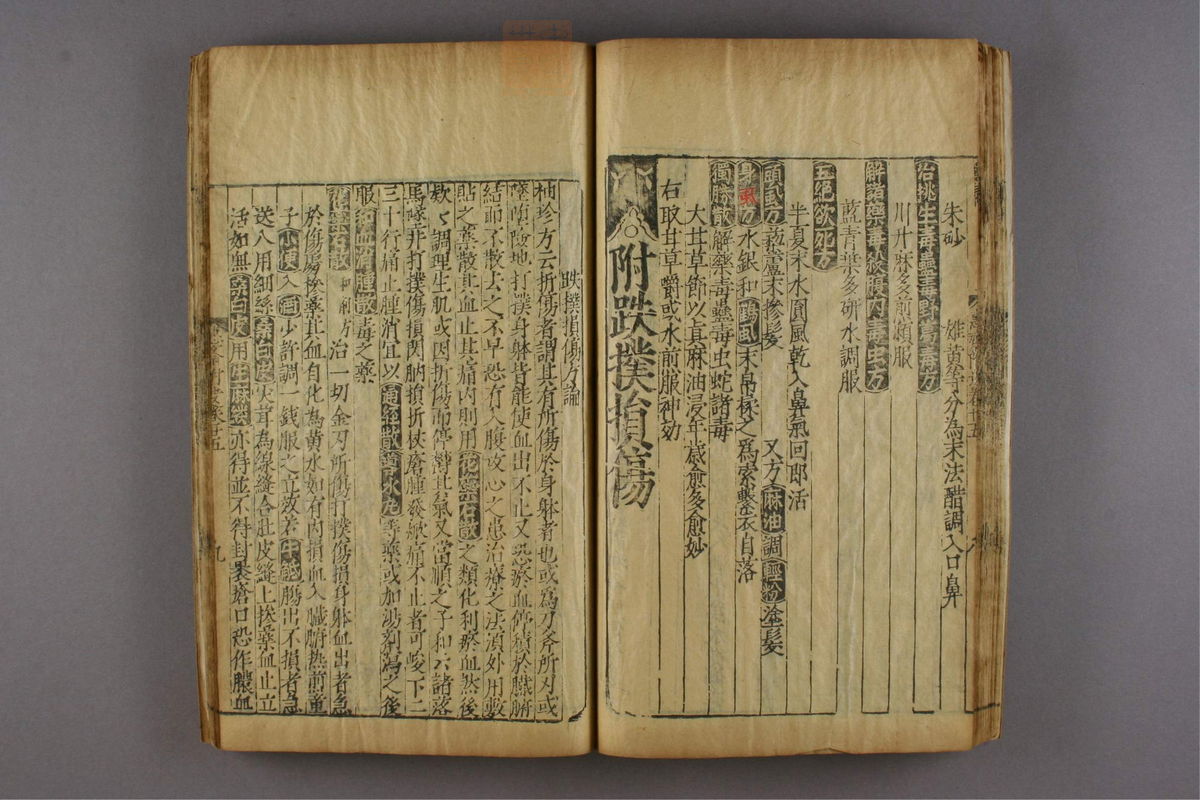 朱砂　雄黃等分為末法醋調入口鼻
治挑生毒蠱毒野葛毒方
川升麻多煎頻服
解藥毒發腸內毒虫方
藍青葉多研水調服
五絕欲死方
半夏末水圓風乾入鼻氣回即活
頭虱方　藜蘆末摻髮　又方　麻油調輕粉塗髮
身虱方　水銀和鷗虱末帛裱之為索繫衣自落
獨勝散　解藥毒蠱毒虫蛇諸毒
大甘草節以真麻油浸年歲愈多愈妙
右取甘草嚼或水煎服神効
附跌撲損傷
跌撲損傷方論
袖珍方云折傷者謂其有所傷於身躰者也或為刀斧所刃或
墜墮險地打撲身躰皆能使血出不止又恐瘀血停積於臟腑
結而不散去之不早恐有入腹攻心之患治療之法須外用敷
貼之藥散其血止其痛內則用花蘂石散之類化利瘀血然後
欵欵調理生肌或因折傷而停欝其氣又當順之子和云諸落
馬墜井打撲傷損閃肭損折杖瘡腫發焮痛不止者可峻下二
三十行痛止腫消宜以通經散導水丸等藥或加湯劑瀉之後
服和血消腫散毒之藥
花蘂石散　和劑方　治一切金刃所傷打撲傷損身躰血出者急
於傷處摻藥其血自化為黃水如有內損血入臟腑熱煎童
子小便入酒少許調一錢服之立效若牛觝腸出不損者急
送入用細絲桑白皮尖茸為線縫合肚皮縫上摻藥血止立
活如無桑白皮用生麻縷亦得並不得封裹瘡口恐作膿血